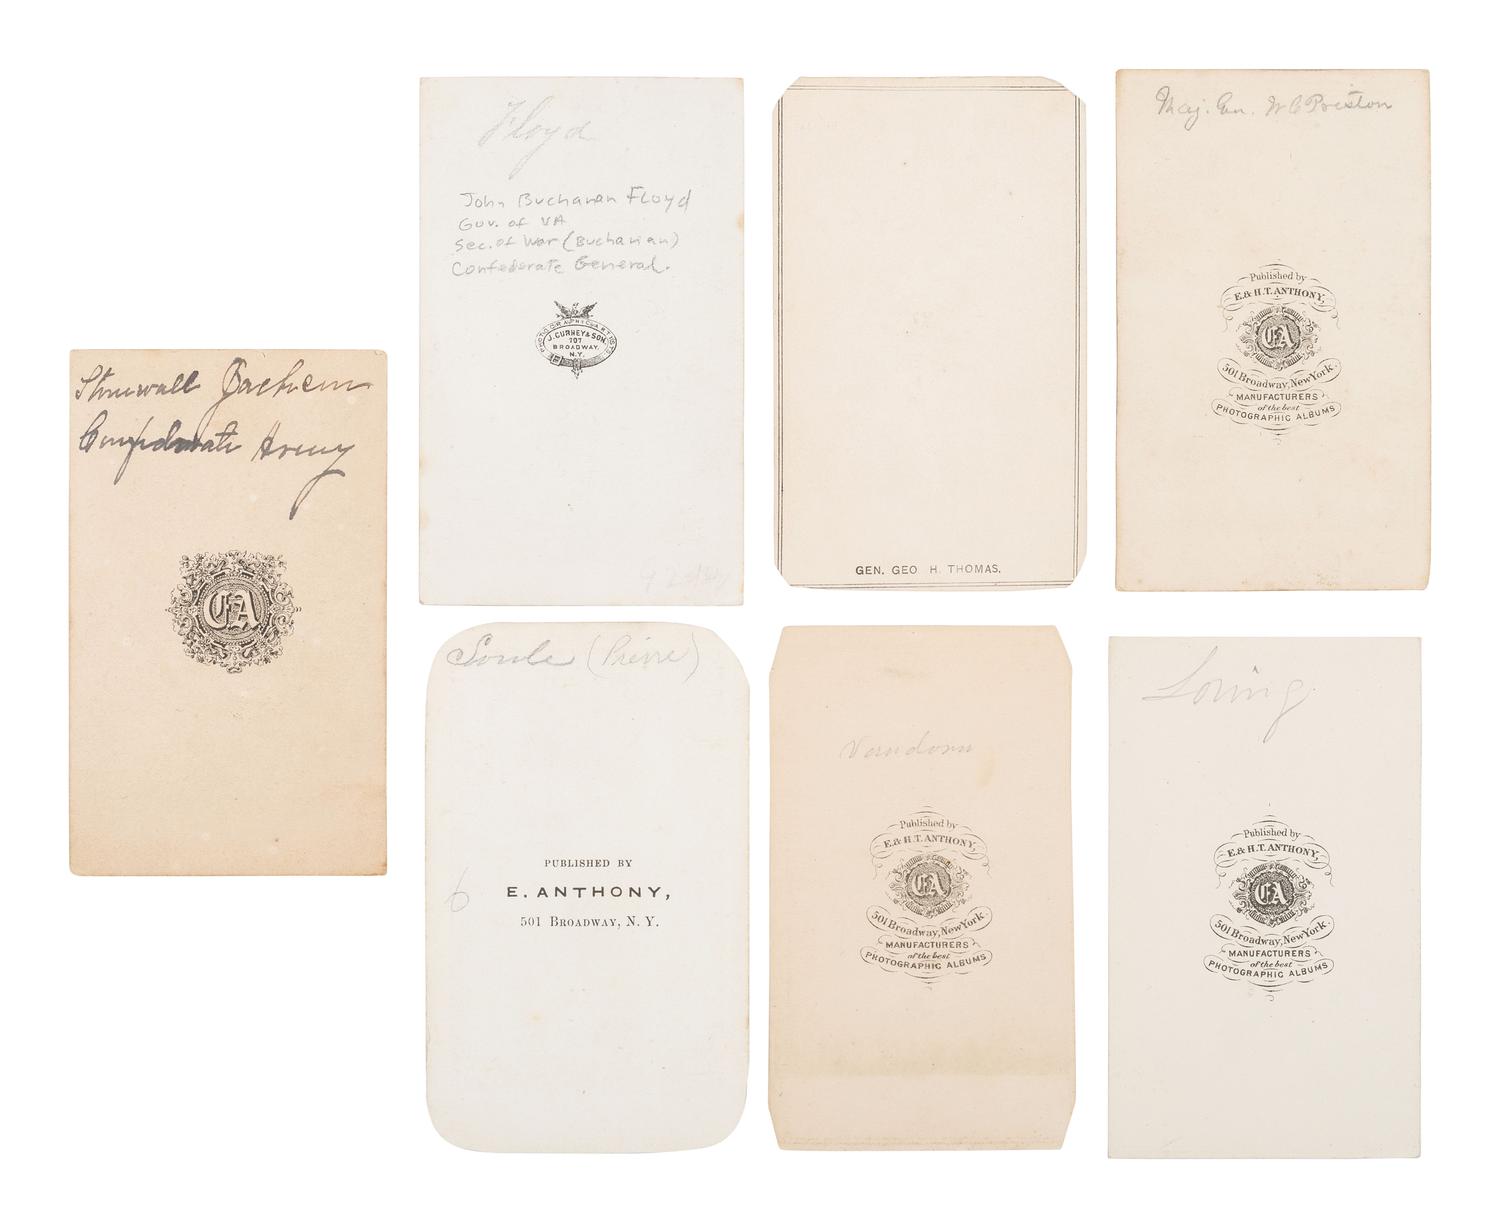 Stonewall Jackson
Confederate Army
CA
Floyd
John Buchanan Floyd
Gov. of VA
Sec. of War (Buchanan)
Confederate General.
PHOTOGRAPHIC ARTISTS
J. GURNEY & SON,
707
BROADWAY,
N.Y.
GEN. GEO H. THOMAS.
Maj. Gen. W C Preston
Published by
E. & H.T. ANTHONY,
CA
501 Broadway, New York.
MANUFACTURERS
of the best
PHOTOGRAPHIC ALBUMS
Soule (Pierre)
6
PUBLISHED BY
E. ANTHONY,
501 BROADWAY, N. Y.
Vandorn
Published by
E. & H.T. ANTHONY,
CA
501 Broadway, New York.
MANUFACTURERS
of the best
PHOTOGRAPHIC ALBUMS
Loring
Published by
E. & H.T. ANTHONY,
CA
501 Broadway, New York.
MANUFACTURERS
of the best
PHOTOGRAPHIC ALBUMS